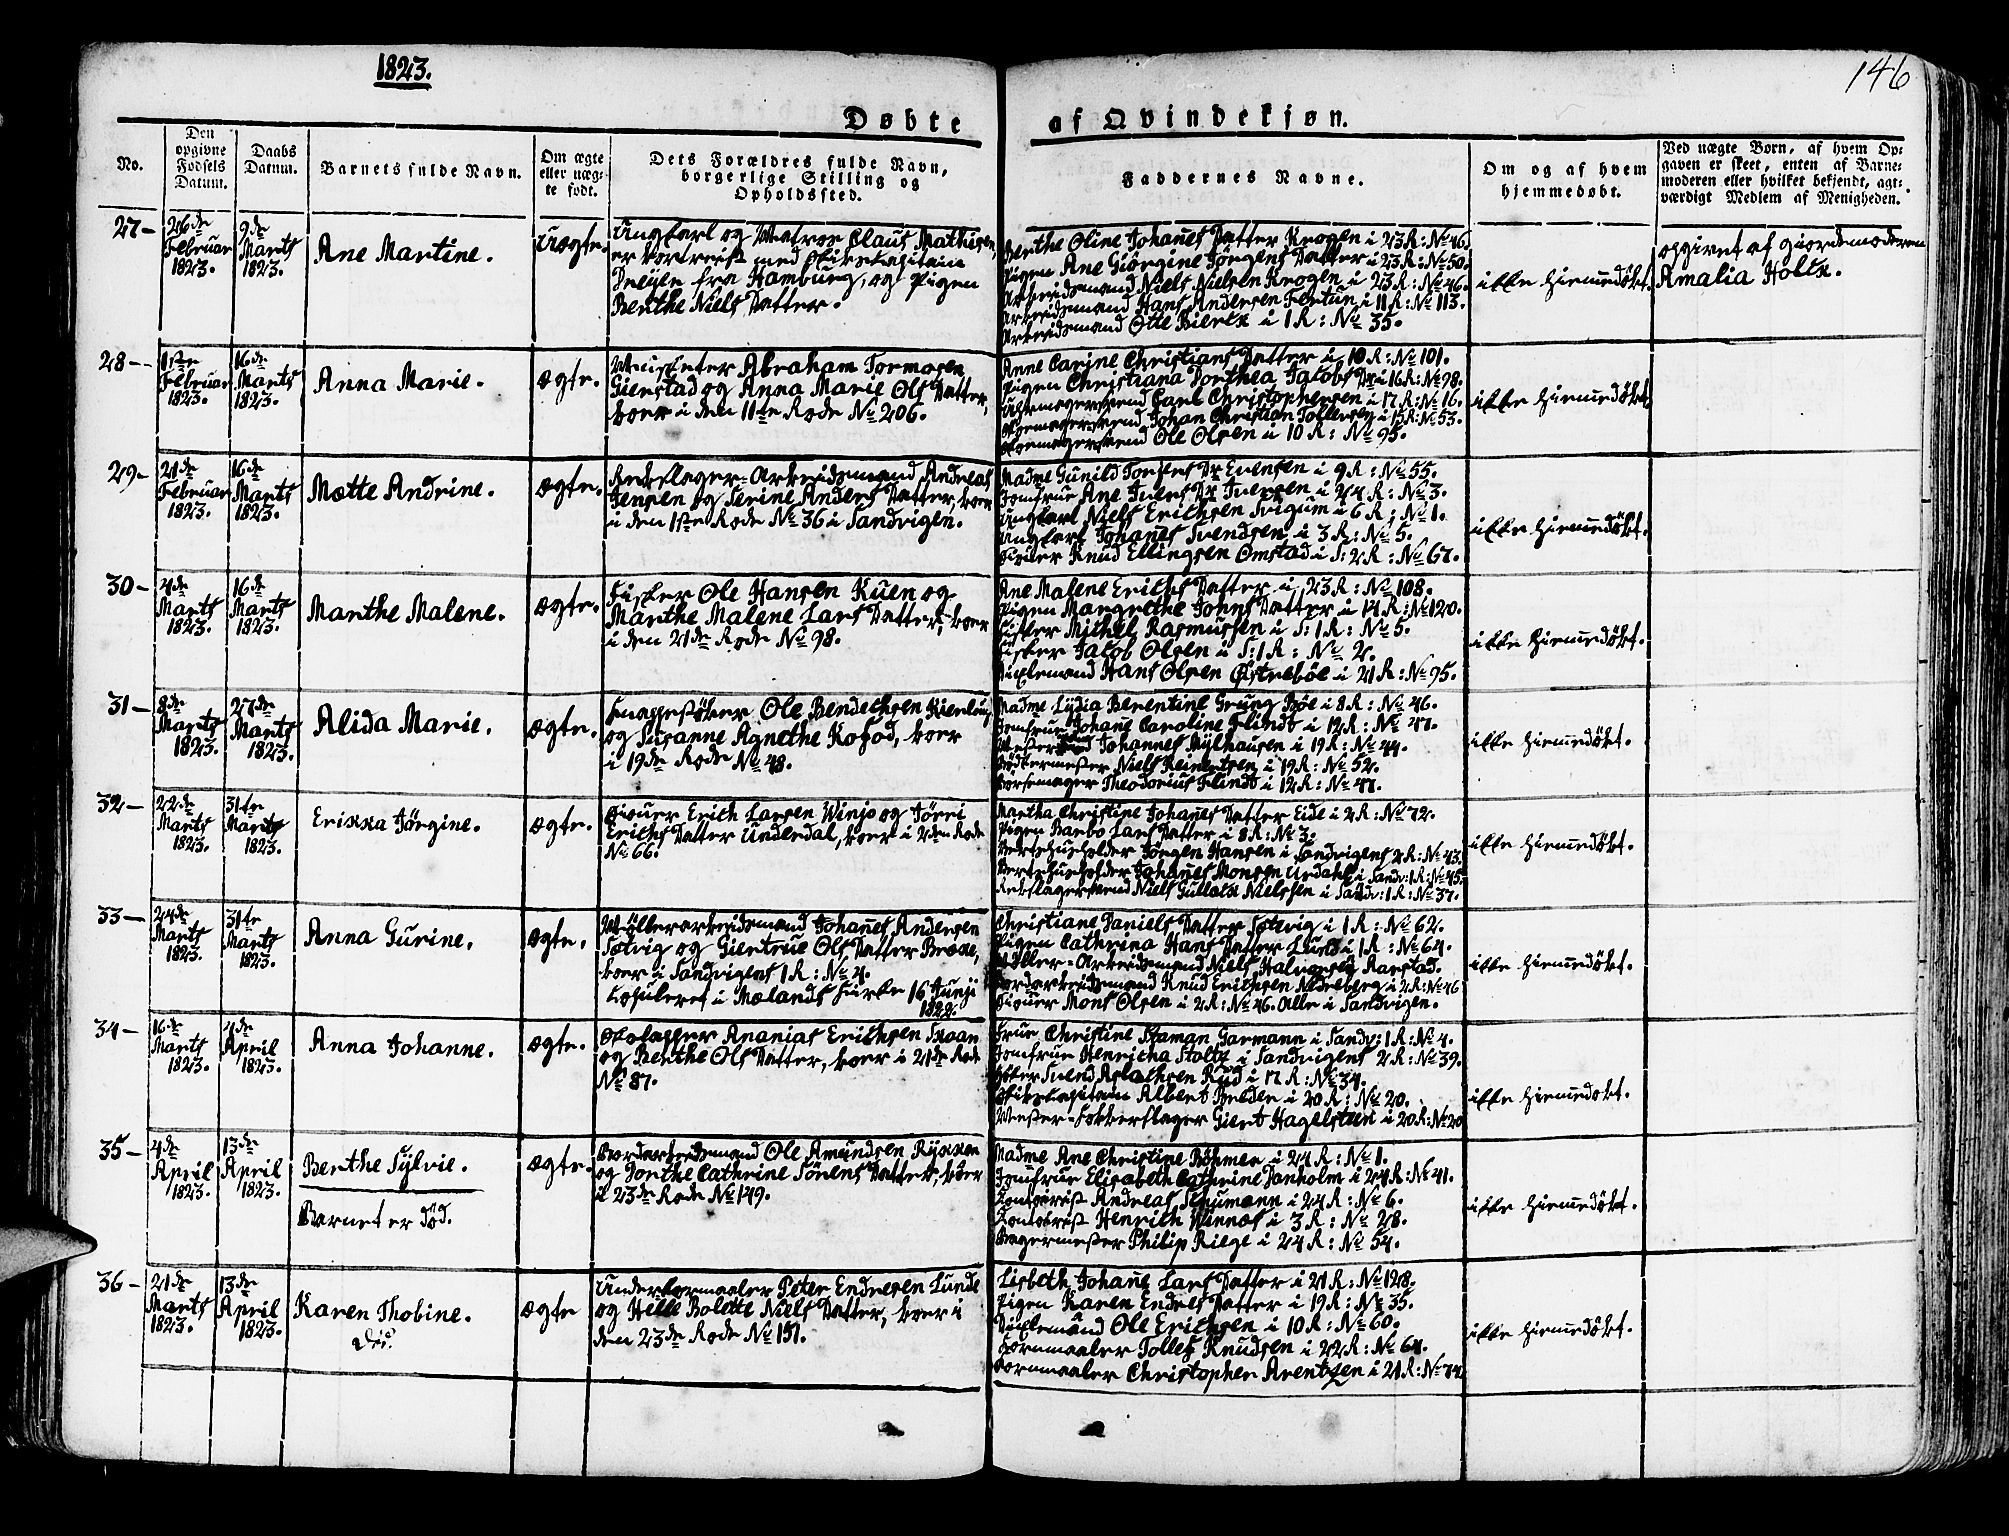 1823.
146
Døbte
af Qvindekjøn.
No.
Den
opgivne
Fødsels
Datum.
Daabs
Datum.
Barnets fulde Navn.
Om ægte
eller uæg-
te født.
Dets Forældres fulde Navn,
borgerlige Stilling og
Opholdssted.
Faddernes Navne.
Om og af hvem
hjemmedøbt.
Ved uægte Børn, af hvem Op-
gaven er skeet, enten af Barne-
moderen eller hvilket bekjendt, agt-
værdigt Medlem af Menigheden.
27-
26de
Februar
1823.
9de
Marts
1823.
Ane Martine.
Uægte.
Ungkarl og Matros Claus Mathisen,
er bortreist med Skibskapitain
fra Hamburg, og Pigen
Berthe Niels Datter.
Berthe Oline Johanes Datter Krogen i 23 R: No 46.
Pigen Ane Giörgine Jörgens Datter i 23 R: No 50.
Arbeidsmand Niels Nielsen Krogen i 23 R: No 46.
Arbeidsmand Hans Andersen Fertun i 11 R: No 113.
Arbeidsmand Otte Biertx i 1 R: No 35.
ikke hiemmedöbt.
opgivet af giordemoderen
Amalia Holtx.
28-
1ste
Februar
1823.
16de
Marts
1823.
Anna Marie.
Ægte.
Musketer Abraham Tormosen
Gienstad og Anna Marie Ols Datter,
boer i den 11te Rode No 206.
Anne Carine Christians Datter i 10 R: No 101.
Pigen Christiana Dorthea Jacobs Dr i 16 R: No 98.
Carl Christophersen i 17 R: No 16.
Skomagersvend Johan Christian Tollersen i 15 R: No 53.
Skomagersvend Ole Olsen i 10 R: No 95.
ikke hiemmedöbt.
29-
21de
Februar
1823.
16de
Marts
1823.
Mætte Andrine.
Ægte.
Rebslager-Arbeidsmand Andreas
Jensen og Serine Anders Datter, boer
i den 1ste Rode No 36 i Sandvigen.
Madme Gunild Torsens Dr Evensen i 9 R: No 55.
Jomfrue Ane Ivers Dr Iversen i 24 R: No 3.
Ungkarl Niels Erichsen Svigum i 6 R: No 1.
Ungkarl Johanes Svendsen i 3 R: No 5.
Knud Ellingsen Omstad i S: 2 R: No 67.
ikke hiemmedöbt.
30-
4de
Marts
1823.
16de
Marts
1823.
Marthe Malene.
Ægte.
Fisker Ole Hansen Kuen og
Marthe Malene Lars Datter, boer
i den 21de Rode No 98.
Ane Malene Erichs Datter i 23 R: No 108.
Pigen Margrethe Johns Datter i 14 R: No 120.
Fisker Michel Rasmussen i S: 1 R: No 5.
Fisker Jacob Olsen i S: 1 R: No 2.
Hans Olsen Østreböe i 21 R: No 95.
ikke hiemmedöbt.
31-
8de
Marts
1823.
27de
Marts
1823.
Alida Marie.
Ægte.
Knappestöber Ole Bendechsen
og Susanne Agnethe Kofod, boer
i 19de Rode No 48.
Madme Lydia Berentine Grung Böe i 8 R: No 46.
Jomfrue Johane Caroline Flindt i 12 R: No 47.
Johannes Mylhausen i 19 R: No 44.
Bödkermester Niels Reinertsen i 19 R: No 52.
Börsemager Theodorius Flindt i 12 R: No 47.
ikke hiemmedöbt.
32-
22de
Marts
1823.
31te
Marts
1823.
Erikka Jörgine.
Ægte.
Erich Larsen Winjo og Jörri
Erichs Datter Underdal, boer i 2den Rode
No 66.
Martha Christine Johanes Datter Eide i 2 R: No 72.
Pigen Barbo Lars Datter i 8 R: No 3.
Vertshusholder Jörgen Hansen i Sandvigens 2 R: No 43.
Vertshusholder Johanes Monsen Urdahl i Sandv: 1 R: No 45.
Rebslagersvend Niels Gullach Nielssen i Sandv: 1 R: No 37.
ikke hiemmedöbt.
33-
24de
Marts
1823.
31te
Marts
1823.
Anna Gurine.
Ægte.
Möllerarbeidsmand Johanes Andersen
Solvig og Giertrue Ols Datter Brose,
boer i Sandvigens 1 R: No 4.
Copuleret i Mælands Kirke 16 Junji
1822.
Christiane Daniels Datter Solvig i 1 R: No 62.
Pigen Cathrina Hans Datter Lund i 1 R: No 64.
Möller-Arbeidsmand Niels Halvorsen Aarstad.
Knud Erichsen Nedreberg i 2 R: No 46
Mons Olsen i 2 R: No 46. Alle i Sandvigen.
ikke hiemmedöbt.
34-
16de
Marts
1823.
4de
April
1823.
Anna Johanne.
Ægte.
Ananias Erichsen Skaar
og Berthe Ols Datter, boer i 21de Rode
No 87.
Frue Christine Staman Garmann i Sandv: 1 R: No 4.
Jomfrue Henricha Stoltz i Sandvigens 2 R: No 39.
Svend Aslachsen Rud i 17 R: No 34.
Skibskapitain Albert Breder i 20 R: No 20.
Mester-Sokkerslager Giert Hagelsteen i 20 R: No 20
ikke hiemmedöbt.
35-
4de
April
1823.
13de
April
1823.
Berthe Sylvie.
Barnet er död.
Ægte.
Ole Amundsen Ryxxen
og Dorthe Cathrine Sörens Datter, boer
i 23de Rode No 149.
Madme Ane Christine Böhmer i 24 R: No 1.
Jomfrue Elisabeth Cathrine Danholm i 24 R: No 41.
Kontorist Andreas Schumann i 24 R: No 6.
Kontorist Henrich Winnæs i 3 R: No 28.
Bagermester Philip Riege i 24 R: No 54.
ikke hiemmedöbt.
36-
21de
Marts
1823.
13de
April
1823.
Karen Thobine.
Död.
Ægte
Underkornmaaler Peter Endresen Lunde
og Helle Bolette Niels Datter, boer i
den 23de Rode No 151.
Lisbeth Johane Lars Datter i 21 R: No 128.
Pigen Karen Endres Datter i 19 R: No 35.
Ole Erichsen i 10 R: No 60.
Kornmaaler Tollef Knudsen i 22 R: No 64.
Kornmaaler Christopher Arentzen i 21 R: No 74.
ikke hiemmedöbt.